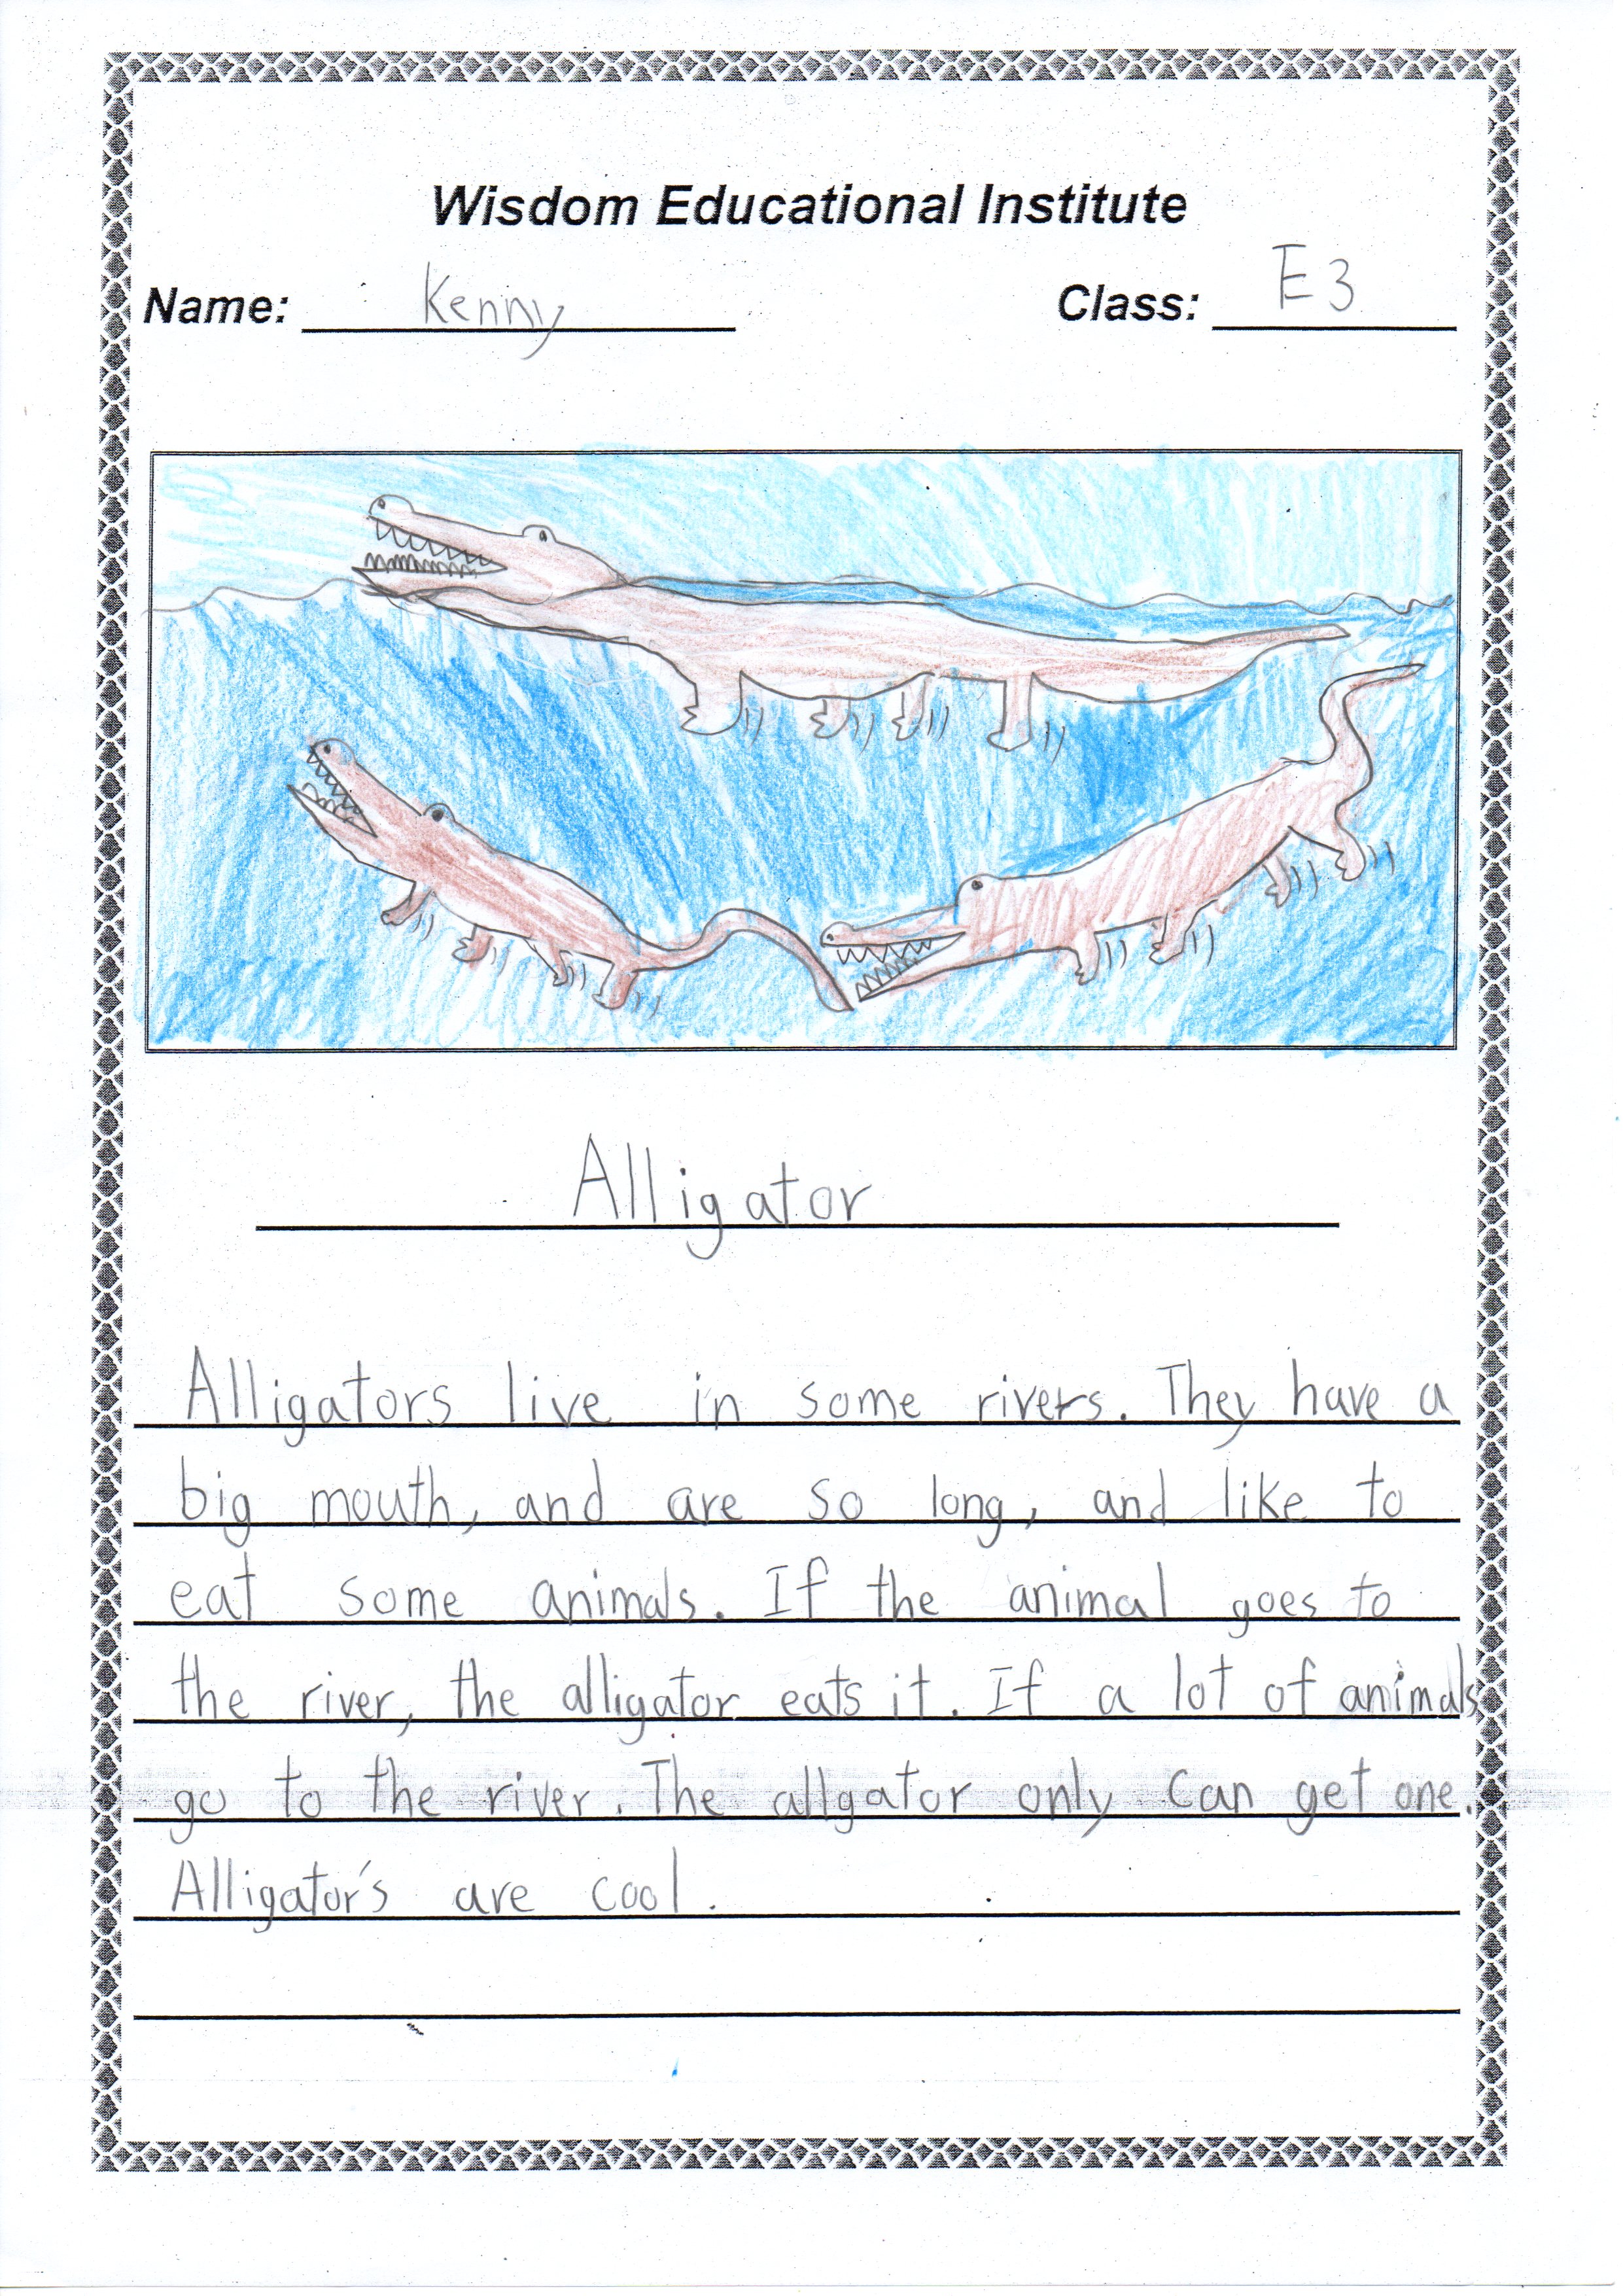 Wisdom Educational Institute
Name: Kenny Class: E3
Alligator
Alligators live in some rivers. They have a
big mouth, and are so long, and like to
eat some animals. If the animal goes to
the river, the alligator eats it. If a lot of animals
go to the river. The allgator only can get one.
Alligator's are cool.